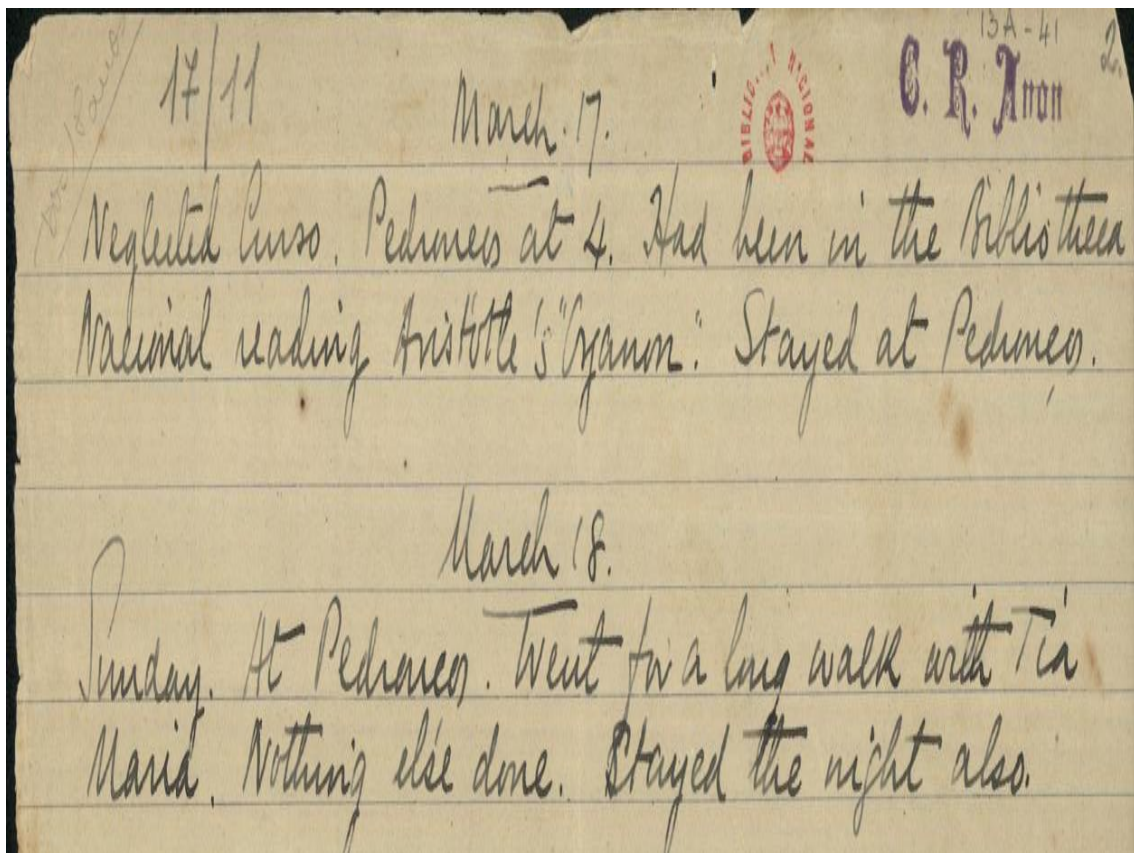 13A-41
17/11
March 17.
C. R. Anon
2.
BIBLIOTECA NACIONAL
Neglected Curso. Pedrouços at 4. Had been in the Bibliotheca
Nacional reading Aristotle's "Organon". Stayed at Pedrouços.
March 18.
Sunday. At Pedrouços. Went for a long walk with Tia
Maria. Nothing else done. Stayed the night also.